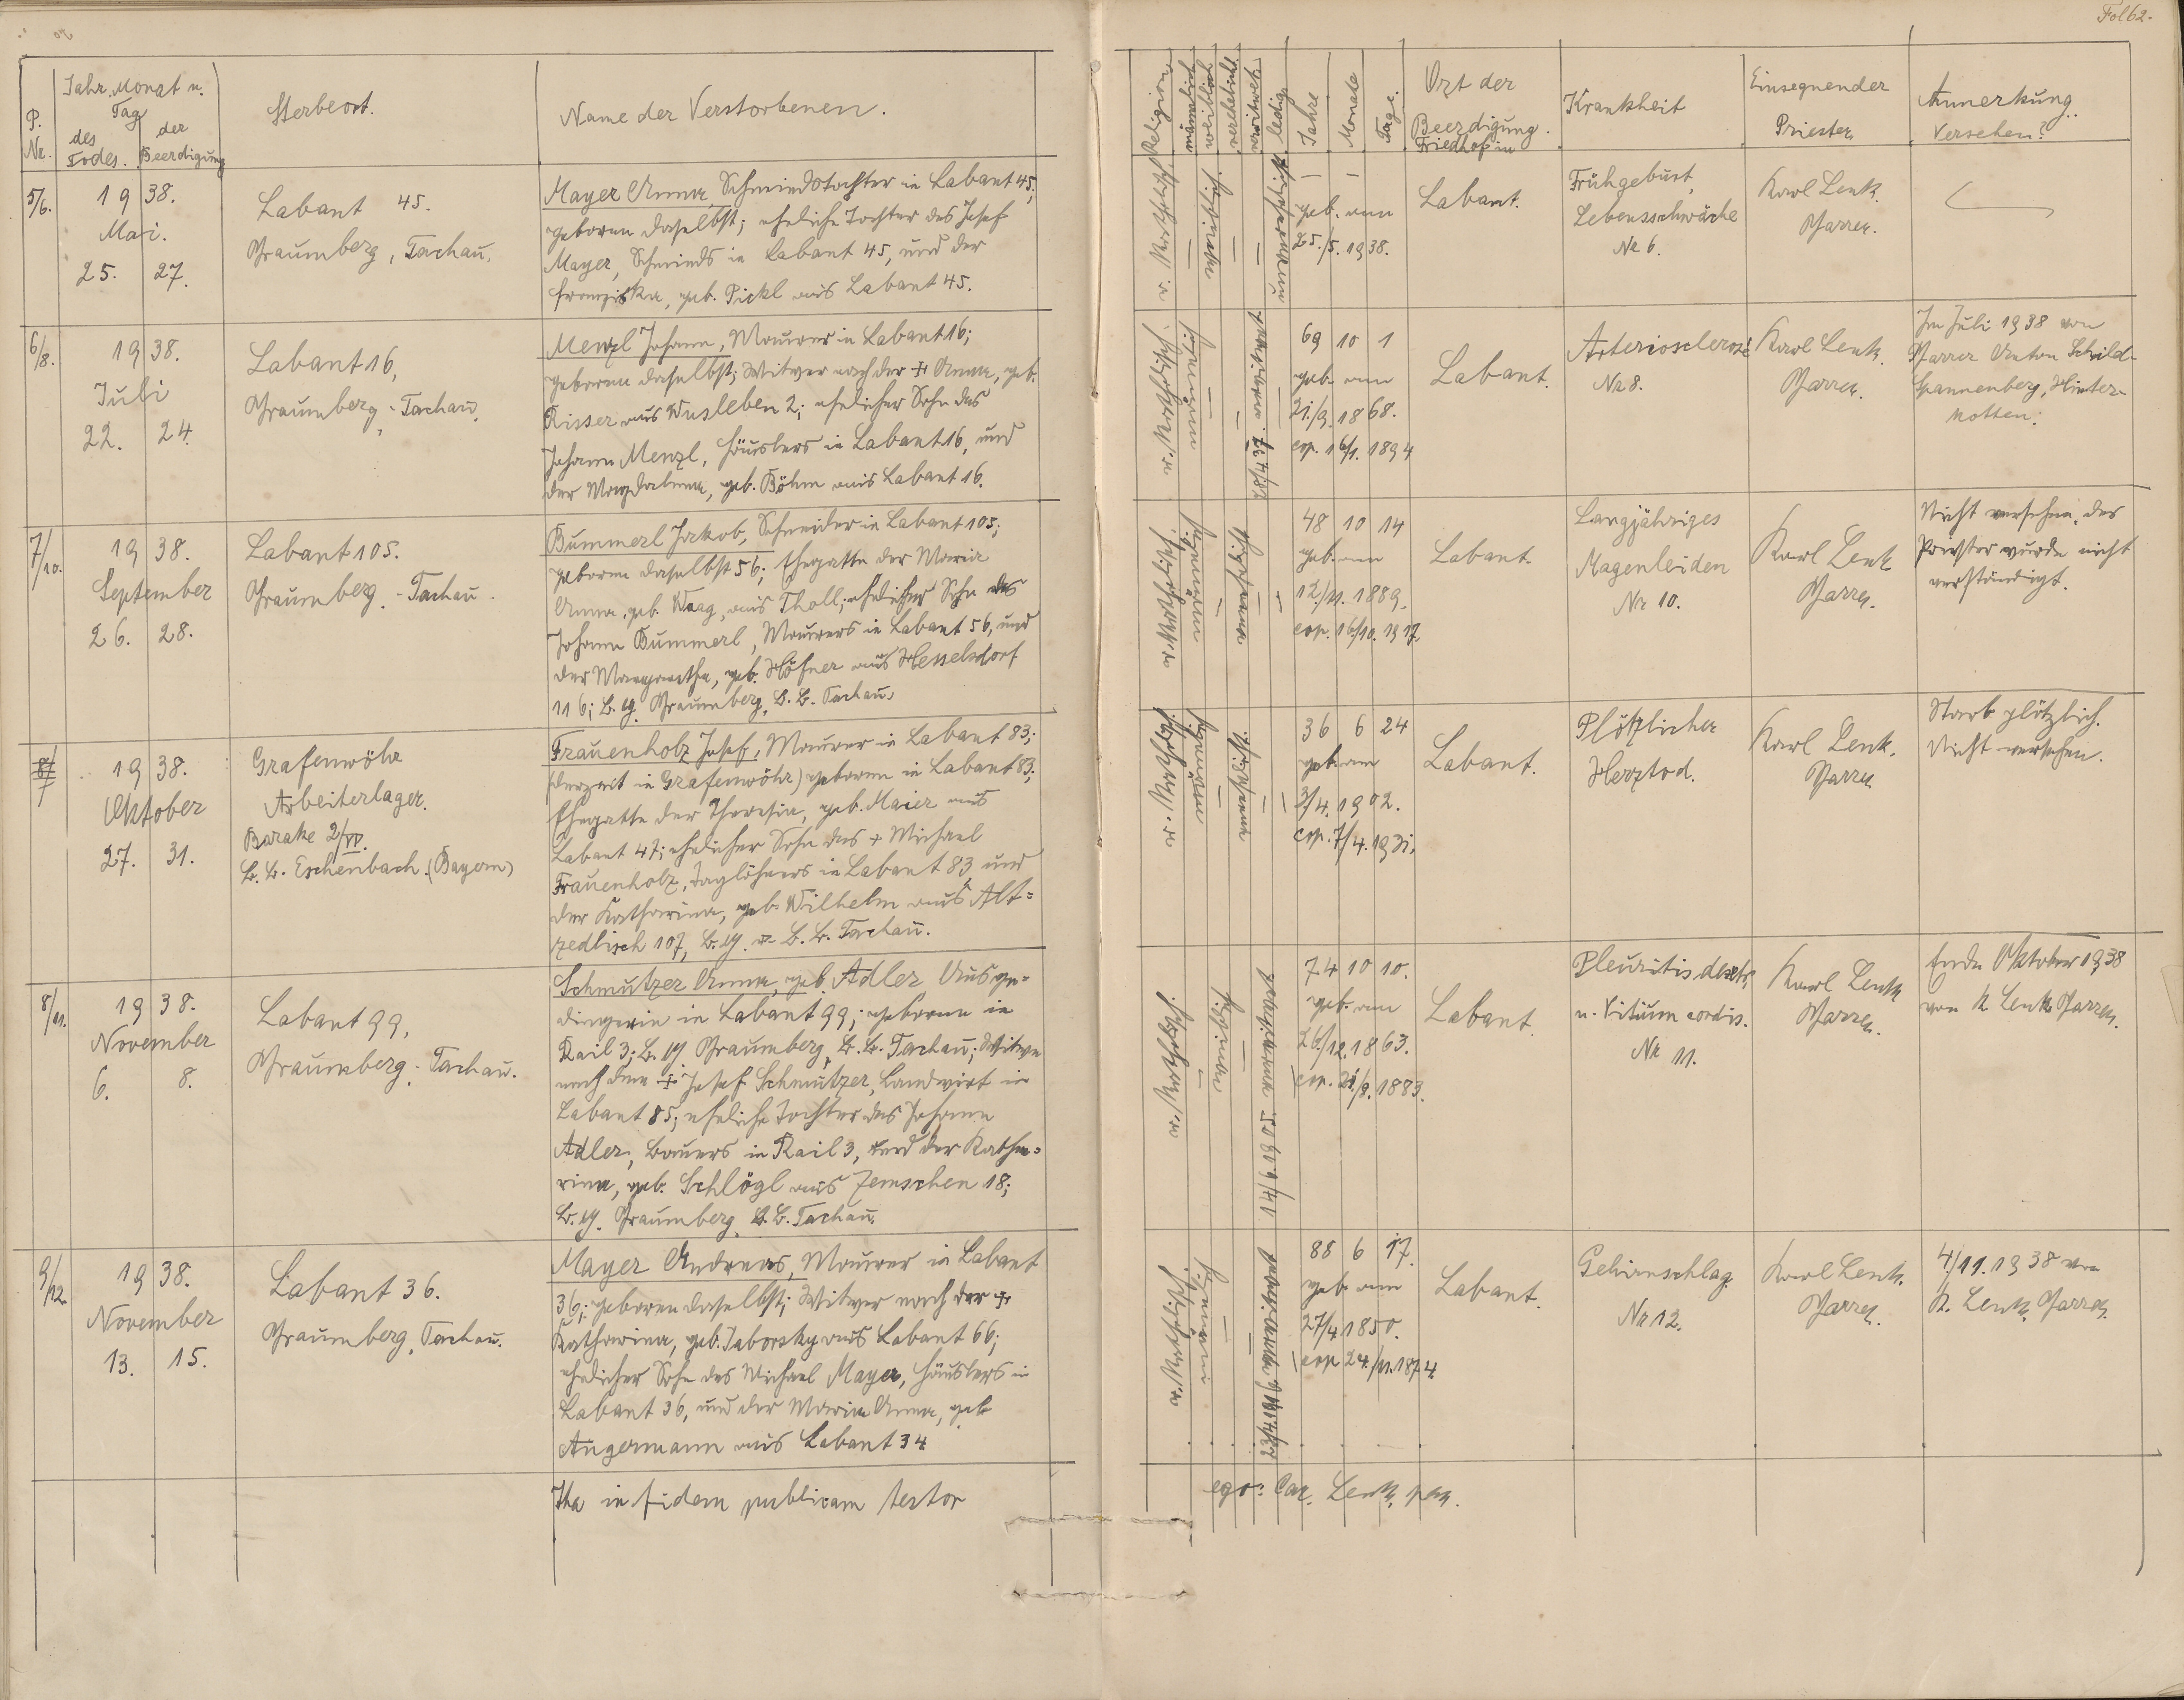 Fol 62.
P. Nr.
Jahr, Monat u. Tag
des Todes.
der Beerdigung
Sterbeort.
Name der Verstorbenen.
Religion
männlich
weiblich
verehelicht
verwitwet
ledig
Jahre
Monate
Tage.
Ort der
Beerdigung.
Friedhof in
Krankheit
Einsegnender
Priester
Anmerkung..
Versehen?
5/6.
1938.
Mai.
25. 27.
Labant 45.
Pfraumberg, Tachau.
Mayer Anna, Schmiedstochter in Labant 45;
geboren daselbst; eheliche Tochter des Josef
Mayer, Schmieds in Labant 45, und der
Franziska, geb. Pickl aus Labant 45.
geb. am
25./5. 1938.
Labant.
Frühgeburt,
Lebensschwäche
Nr 6.
Karl Lenk.
Pfarrer.
6/8.
1938.
Juli
22. 24.
Labant 16,
Pfraumberg - Tachau.
Menzl Johann, Maurer in Labant 16;
geboren daselbst; Witwer nach der + Anna, geb.
Risser aus Wusleben 2; ehelicher Sohn des
Johann Menzl, Häuslers in Labant 16, und
der Magdalena, geb. Böhm aus Labant 16.
69 10 1
geb. am
21./9. 1868.
cop. 16/1. 1894
Labant.
Arteriosclerose
Nr 8.
Karl Lenk.
Pfarrer.
Im Juli 1938 von
Pfarrer Anton Schild-
Spannenberg, Hinter-
kotten.
7/10.
1938.
September
26. 28.
Labant 105.
Pfraumberg - Tachau.
Bummerl Jakob, Schneider in Labant 105;
geboren daselbst 56; Ehegatte der Maria
Anna, geb. Waag, aus Tholl; ehelicher Sohn des
Johann Bummerl, Maurers in Labant 56, und
der Margaretha, geb. Höfner aus Hesselsdorf
116; B. G. Pfraumberg, B. B. Tachau.
48 10 14
geb. am
12./11. 1889.
cop. 16/10. 1917.
Labant.
Langjähriges
Magenleiden
Nr 10.
Karl Lenk
Pfarrer.
Nicht versehen, des
Priester wurde nicht
verständigt.
1938.
Oktober
27. 31.
Grafenwöhr
Arbeiterlager.
Barake 2/VI.
B. B. Eschenbach. (Bayern)
Frauenholz Josef, Maurer in Labant 83;
(derzeit in Grafenwöhr) geboren in Labant 83;
Ehegatte der Theresia, geb. Maier aus
Labant 47; ehelicher Sohn des + Michael
Frauenholz, Taglöhners in Labant 83 und
der Katharina, geb. Wilhelm aus Alt=
zedlisch 107, B. G. u B. B. Tachau.
36 6 24
geb. am
3/4. 1902.
cop. 7/4. 1931.
Labant.
Plötzlicher
Herztod.
Karl Lenk.
Pfarrer
Starb plötzlich.
Nicht versehen.
8/11.
1938.
November
6. 8.
Labant 99,
Pfraumberg - Tachau.
Schmutzer Anna, geb. Adler Ausge=
dingerin in Labant 99; geboren in
Rail 3; B. G. Pfraumberg, B. B. Tachau; Witwe
nach dem + Josef Schmutzer, Landwirt in
Labant 85; eheliche Tochter des Johann
Adler, Bauers in Rail 3, und der Katha=
rina, geb. Schlögl aus Zemschen 18;
B. G. Pfraumberg, B. B. Tachau.
74 10 10.
geb. am
26./12. 1863.
cop. 21/8. 1883.
Labant.
Pleuritis dextr.
u. Vitium cordis.
Nr 11.
Karl Lenk
Pfarrer.
Ende Oktober 1938
von K. Lenk, Pfarrer.
9/12.
1938.
November
13. 15.
Labant 36.
Pfraumberg, Tachau.
Mayer Andreas, Maurer in Labant
36; geboren daselbst; Witwer nach der +
Katharina, geb. Taborsky aus Labant 66;
ehelicher Sohn des Michael Mayer, Häuslers in
Labant 36, und der Maria Anna, geb.
Angermann aus Labant 34
88 6 17.
geb. am
27/4 1850.
cop 24./11. 1874.
Labant.
Gehirnschlag.
Nr 12.
Karl Lenk.
Pfarrer.
4./11. 1938 von
K. Lenk, Pfarrer.
Ita in fidem publicam testor
ego: Car. Lenk, par.